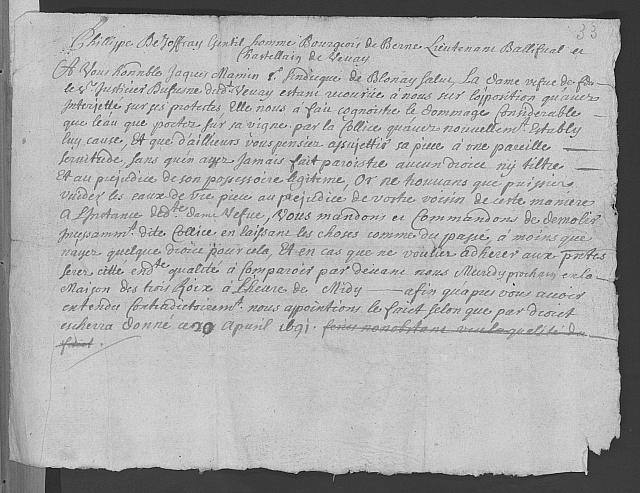 33
Philippe De Joffrey Gentil homme Bourgeois de Berne Lieutenant Ballifual et
Chastellain de Vevay
A Vous Honnble Jaques Mamin Sindicque de Blonay Salut, La dame vefve de feu
le Sr Justicier Dufresne dudt Vevay estant recourüe à nous sur l'oposition qu'avez
Interjette sur ses protestes Elle nous à fait cognoistre le dommage considerable
que l'eau que portez sur sa vigne par la Collice qu'avez nouvellemt Establÿ
luy cause, Et que d'ailleurs vous pensiez assujettir sa piece à une pareille
servitude, sans qu'en ayez Jamais fait paroistre aucun droict nÿ tiltre
Et au prejudice de son possessoire legitime, Or ne trouvans que puissiez
vuider les eaux de vre piece au prejudice de vostre voisin de cette maniere
A L'instance de dte dame vefve, Vous mandons et Commandons de demolir
Incessammt dite Collice en laissant les choses comme du passé, à moins que
n'ayez quelque droict pour cela, Et en cas que ne voulier adherer aux pntes
serez citté en dte qualité à comparoir par devant nous Mecredy prochain en la
Maison des trois Roix à L'heure de Midy afin qu'apres vous avoir
entendu contradictoiremt nous appointions le faict selon que par droict
escherra donné ce 20 Apvril 1691. nonobstant